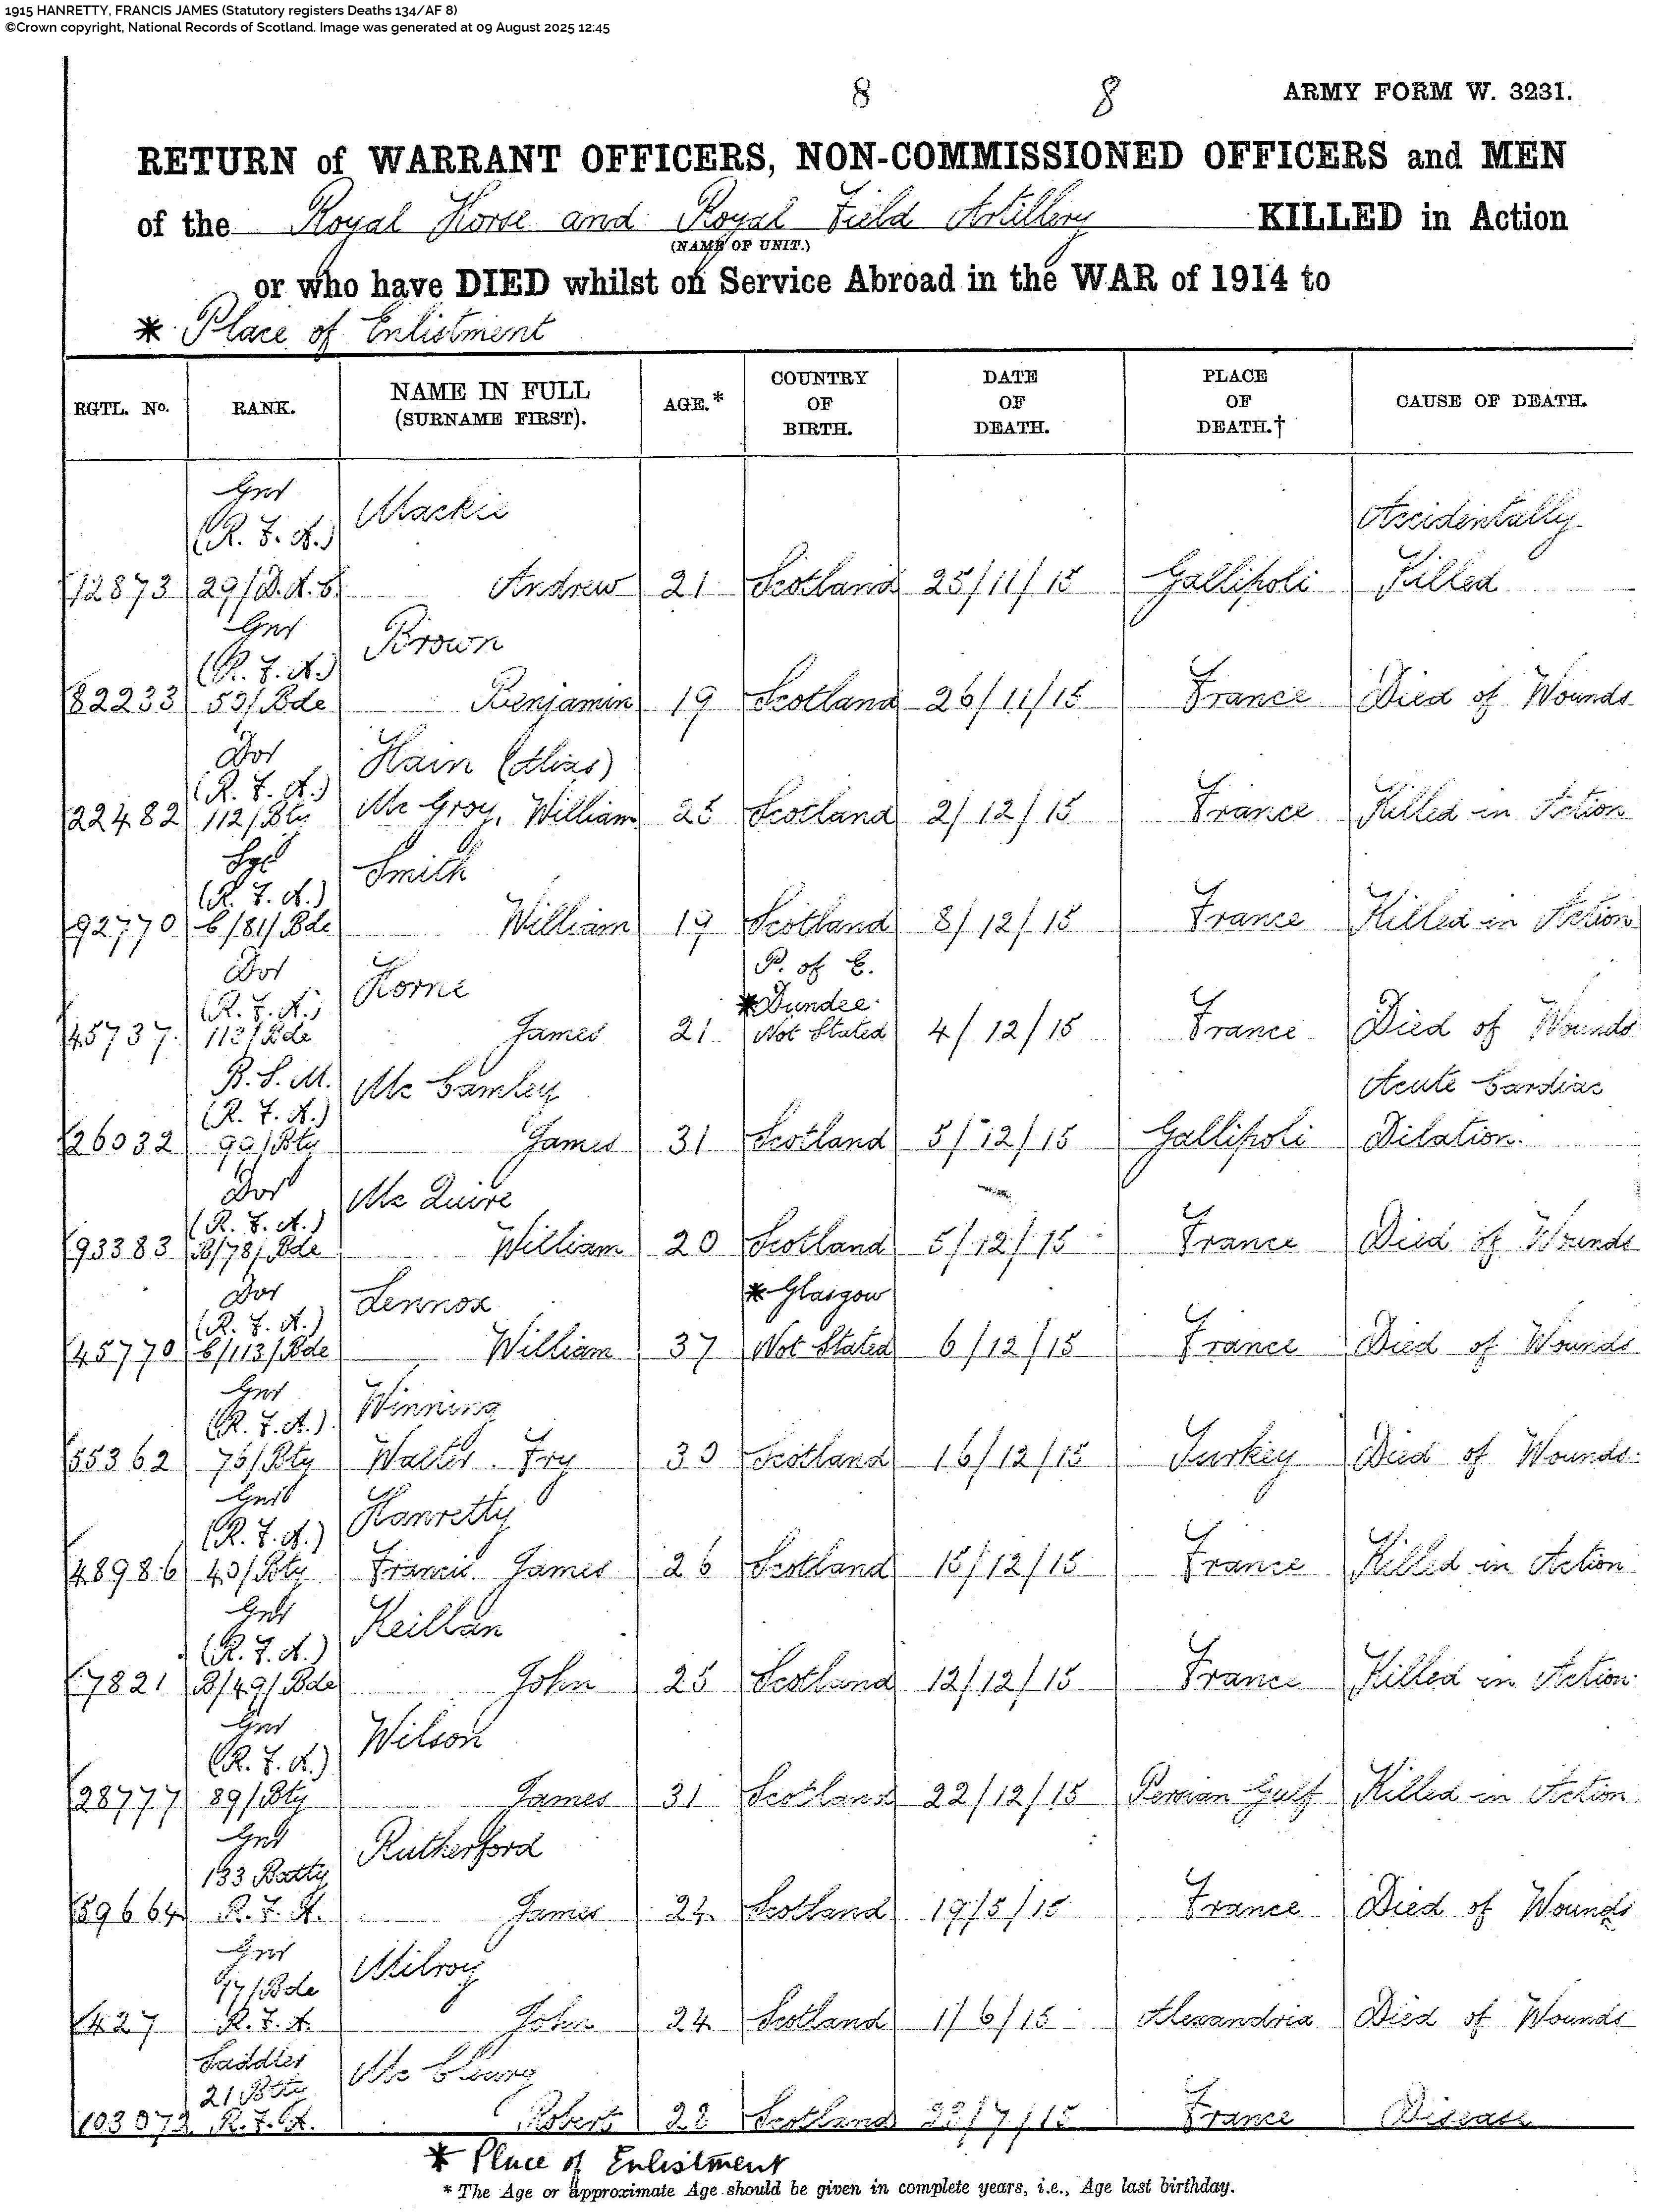 1915 HANRETTY, FRANCIS JAMES (Statutory registers Deaths 134/AF 8)
©Crown copyright, National Records of Scotland. Image was generated at 09 August 2025 12:45
8 8 ARMY FORM W. 3231.
RETURN of WARRANT OFFICERS, NON-COMMISSIONED OFFICERS and MEN
of the Royal Horse and Royal Field Artillery KILLED in Action
(NAME OF UNIT.)
or who have DIED whilst on Service Abroad in the WAR of 1914 to
* Place of Enlistment
RGTL. No. RANK. NAME IN FULL (SURNAME FIRST). AGE.* COUNTRY OF BIRTH. DATE OF DEATH. PLACE OF DEATH.† CAUSE OF DEATH.
Gnr
(R. F. A.) Mackie Accidentally
12873 29/D.A.C. Andrew 21 Scotland 25/11/15 Gallipoli Killed
Gnr Brown
(R. F. A.)
82233 /Bde Benjamin 19 Scotland 26/11/15 France Died of Wounds
Dvr Hain (Alias)
(R. F. A.)
22482 112/Bty Mc Groy, William 25 Scotland 2/12/15 France Killed in Action
Sgt Smith
(R. F. A.)
92770 C/81/Bde William 19 Scotland 8/12/15 France Killed in Action
Dvr Horne P. of E.
(R. F. A.) *Dundee
45737 113/Bde James 21 Not Stated 4/12/15 France Died of Wounds
B. S. M. Mc Camley Acute Cardiac
(R. F. A.)
26032 90/Bty James 31 Scotland 5/12/15 Gallipoli Dilation.
Dvr Mc Quire
(R. F. A.)
93383 B/78/Bde William 20 Scotland 5/12/15 France Died of Wounds
Dvr Lennox * Glasgow
(R. F. A.)
45770 C/113/Bde William 37 Not Stated 6/12/15 France Died of Wounds
Gnr Winning
(R. F. A.)
55362 /Bty Walter Fry 30 Scotland 16/12/15 Turkey Died of Wounds
Gnr Hanretty
(R. F. A.)
48986 40/Bty Francis James 26 Scotland 15/12/15 France Killed in Action
Gnr Keillan
(R. F. A.)
7821 B/49/Bde John 25 Scotland 12/12/15 France Killed in Action
Gnr Wilson
(R. F. A.)
28777 89/Bty James 31 Scotland 22/12/15 Persian Gulf Killed in Action
Gnr Rutherford
133 Batty
59664 R. F. A. James 24 Scotland 19/5/15 France Died of Wounds
Gnr Milroy
17/Bde
427 R. F. A. John 24 Scotland 1/6/15 Alexandria Died of Wounds
Saddler Mc Clurg
21 Btty
103072 R. F. A. Robert 28 Scotland /7/15 France Disease
* Place of Enlistment
* The Age or approximate Age should be given in complete years, i.e., Age last birthday.